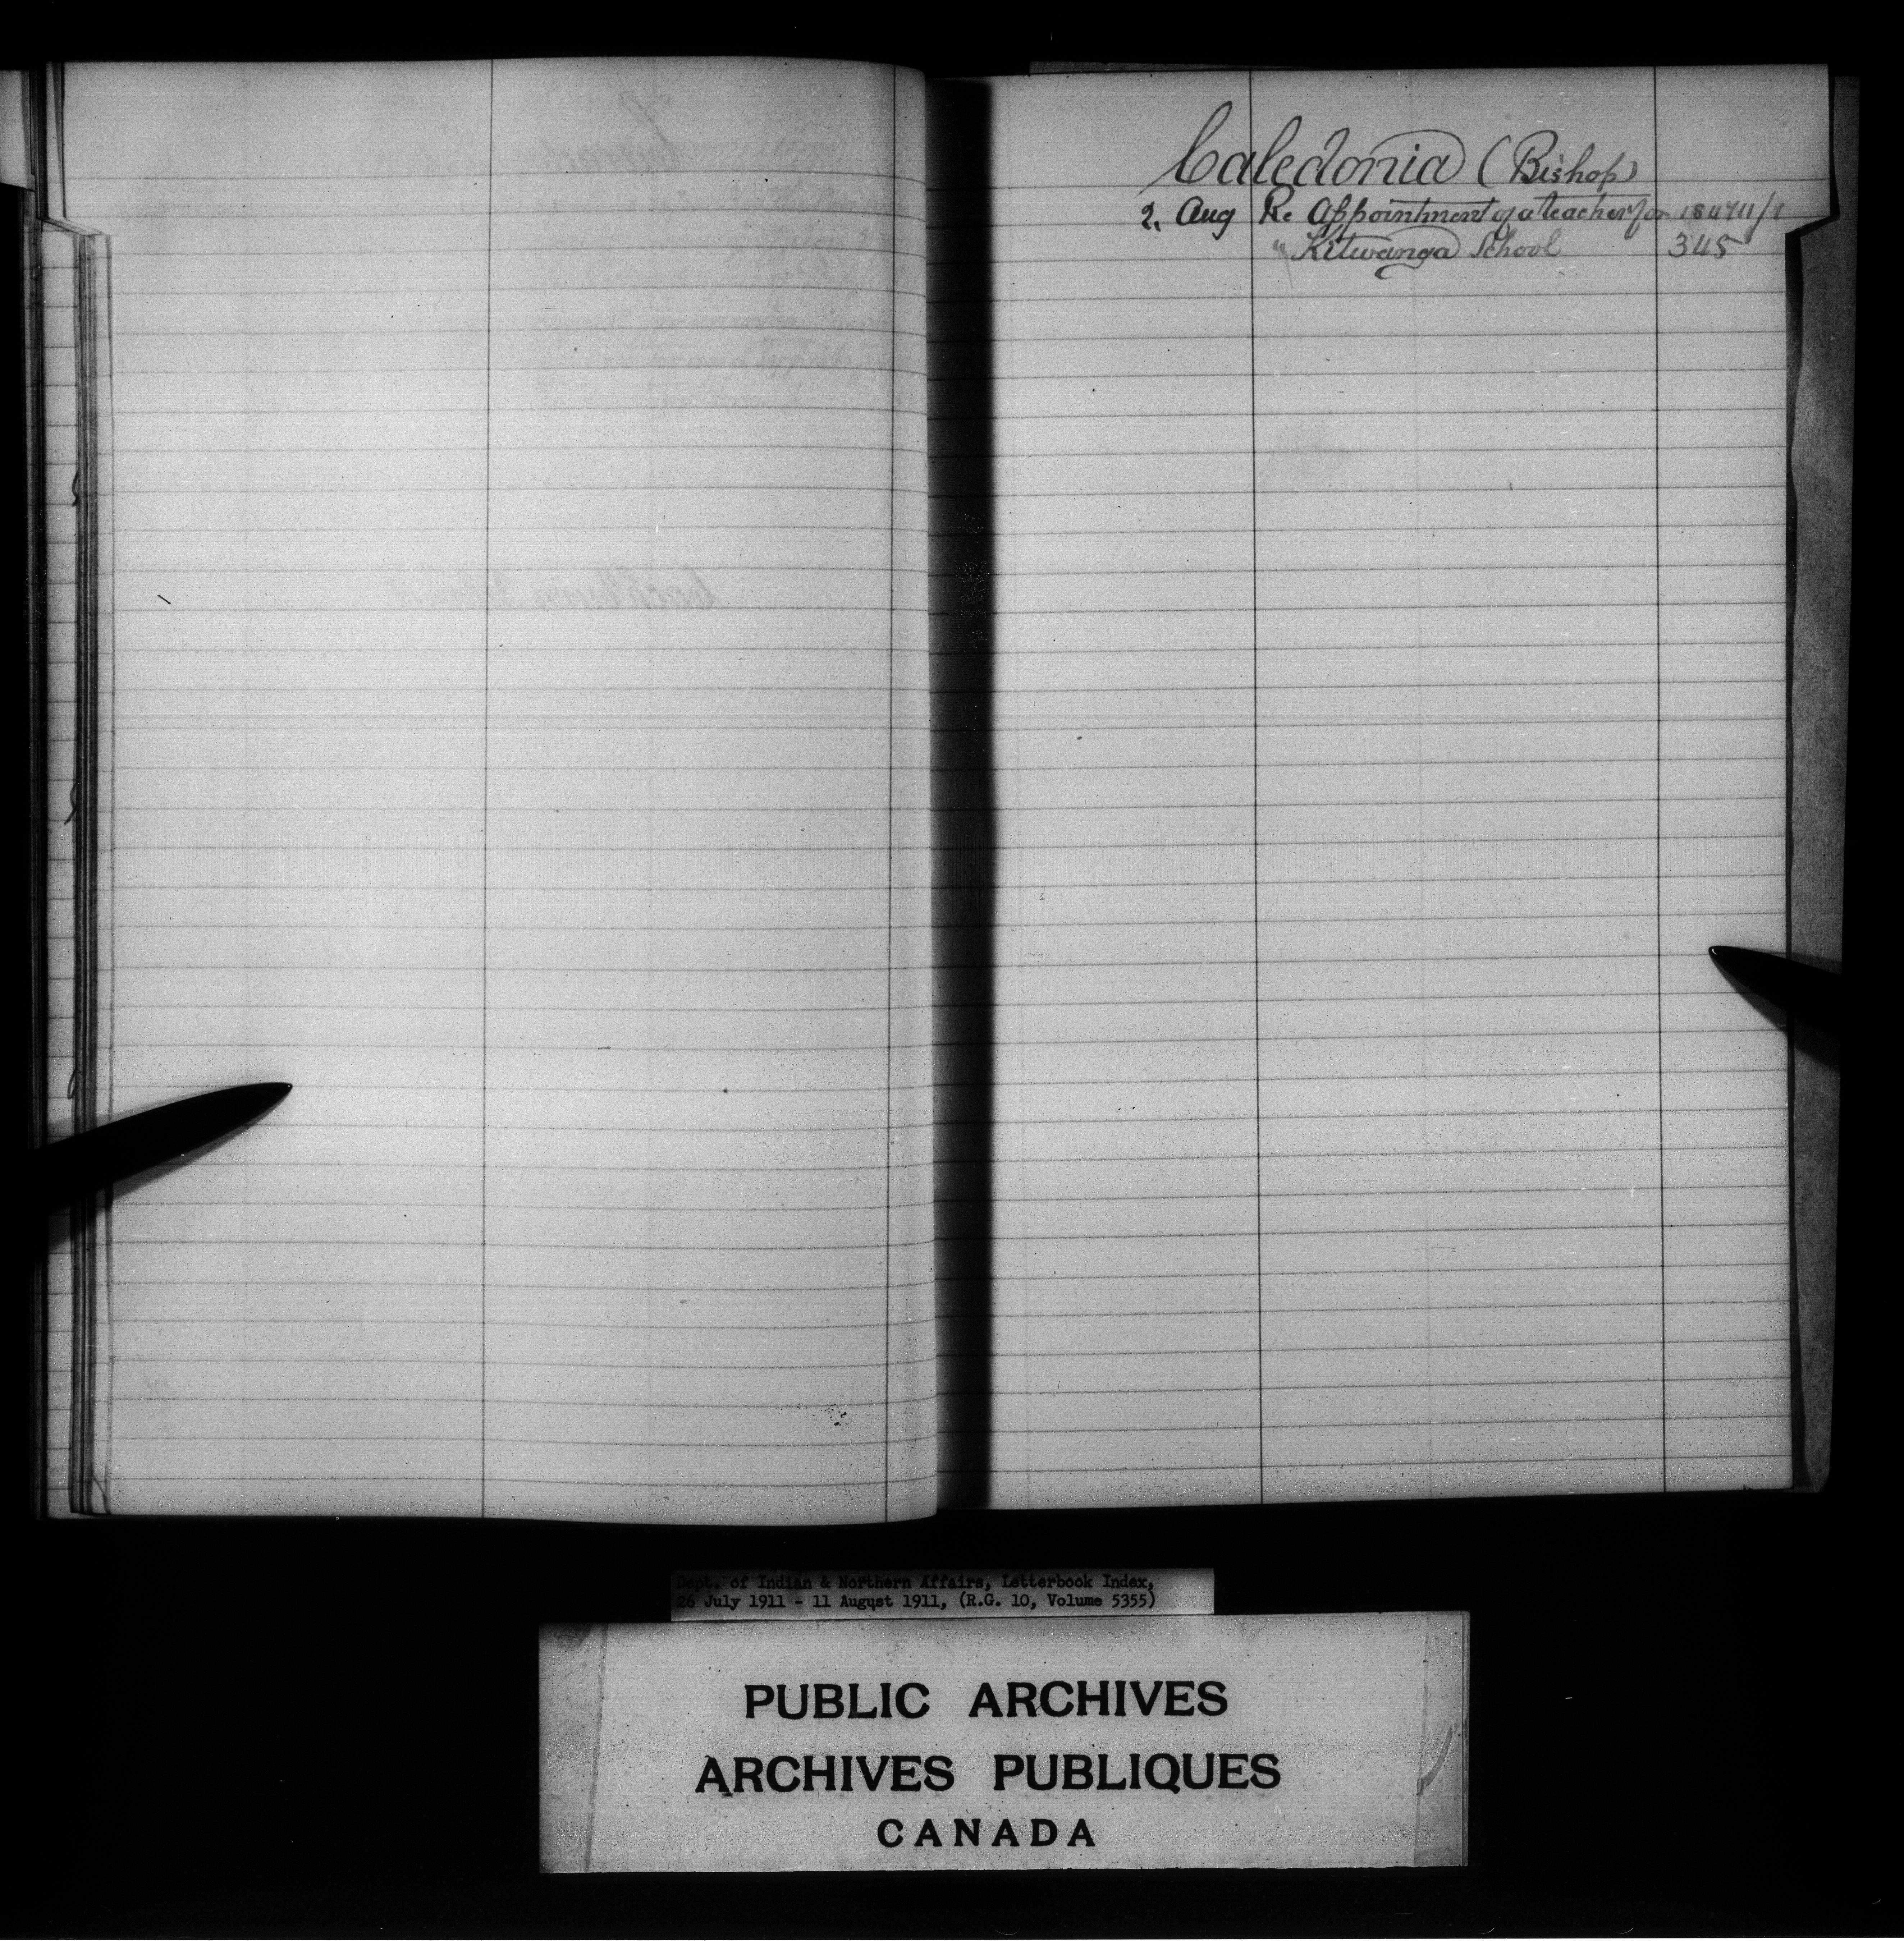 Caledonia (Bishop)
2, Aug Re Appointment of a teacher for
" Kitwanga School 345
Dept. of Indian & Northern Affairs, Letterbook Index,
26 July 1911 - 11 August 1911, (R.G. 10, Volume 5355)
PUBLIC ARCHIVES
ARCHIVES PUBLIQUES
CANADA